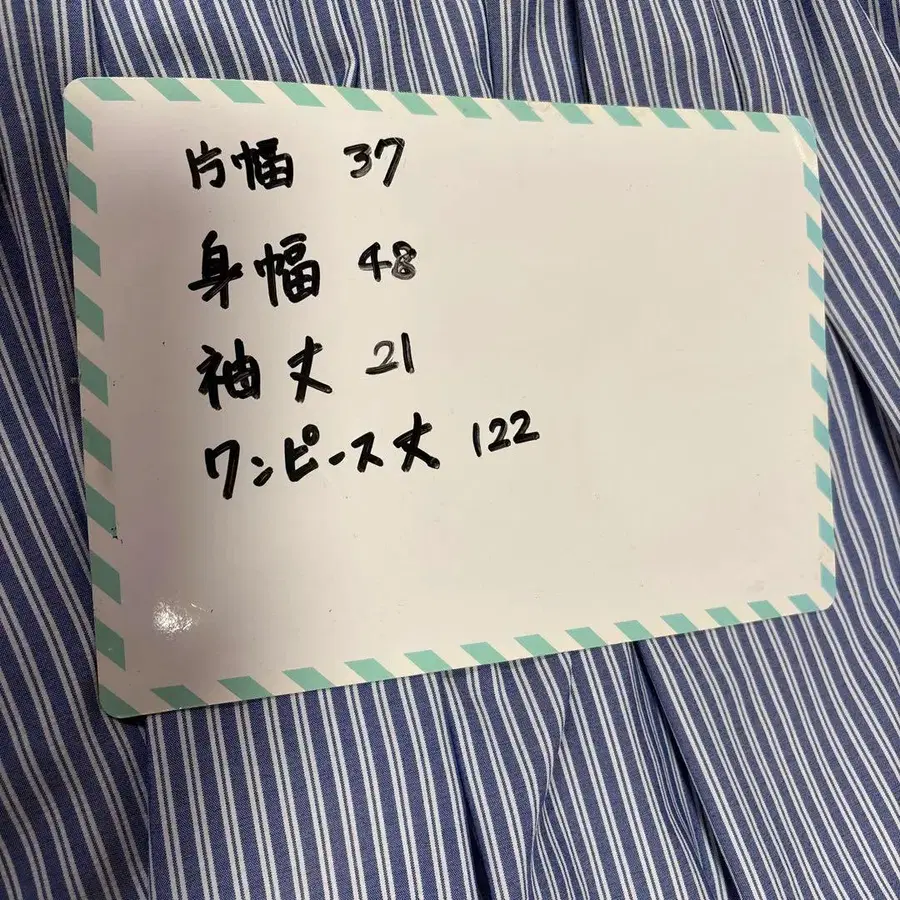 片幅 37
身幅 48
袖丈 21
ワンピース丈 122